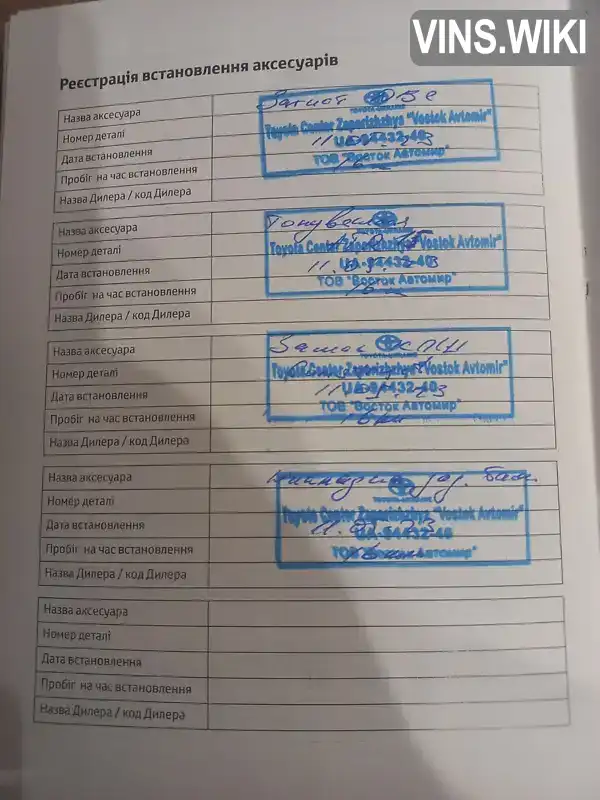 VINS.WIKI
Реєстрація встановлення аксесуарів
Назва аксесуара
Номер деталі
Дата встановлення
Пробіг на час встановлення
Назва Дилера / код Дилера
TOYOTA-UKRAINE
Toyota Center Zaporizhzhya "Vostok Avtomir"
UA-94432-40
ТОВ "Восток Автомир"
Назва аксесуара
Номер деталі
Дата встановлення
Пробіг на час встановлення
Назва Дилера / код Дилера
Тонування
TOYOTA-UKRAINE
Toyota Center Zaporizhzhya "Vostok Avtomir"
UA-94432-40
ТОВ "Восток Автомир"
Назва аксесуара
Номер деталі
Дата встановлення
Пробіг на час встановлення
Назва Дилера / код Дилера
Замок КПП
TOYOTA-UKRAINE
Toyota Center Zaporizhzhya "Vostok Avtomir"
UA-94432-40
ТОВ "Восток Автомир"
Назва аксесуара
Номер деталі
Дата встановлення
Пробіг на час встановлення
Назва Дилера / код Дилера
TOYOTA-UKRAINE
Toyota Center Zaporizhzhya "Vostok Avtomir"
UA-94432-40
ТОВ "Восток Автомир"
Назва аксесуара
Номер деталі
Дата встановлення
Пробіг на час встановлення
Назва Дилера / код Дилера